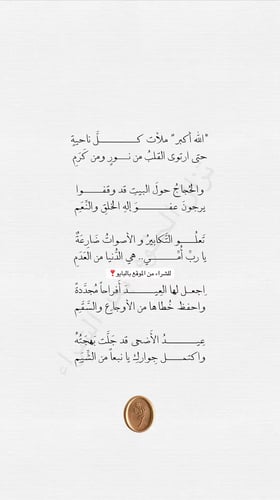 "الله أكبر" ملأت كـــل ناحيةٍ
حتى ارتوى القلبُ من نـورٍ ومن كَرَمِ
والحُجاجُ حولَ البيتِ قد وقفـوا
يرجونَ عفـوَ إلهِ الخلقِ والنِّعَمِ
تَعلُـو التَّكابيرُ و الأصواتُ ضَارعَةٌ
يا ربِّ أُمِّـي.. هي الدُّنيا من العَدَمِ
للشراء من الموقع بالبايو
اِجعـل لها العِيـدَ أفراحاً مُجدَّدةً
واحفظ خُطاها من الأوجاعِ والسَّقَمِ
عِيـدُ الأَضحى قد جَلَّت بَهجَتُهُ
واكتمـل جِوارِكِ يا نبعاً من الشِّيَمِ